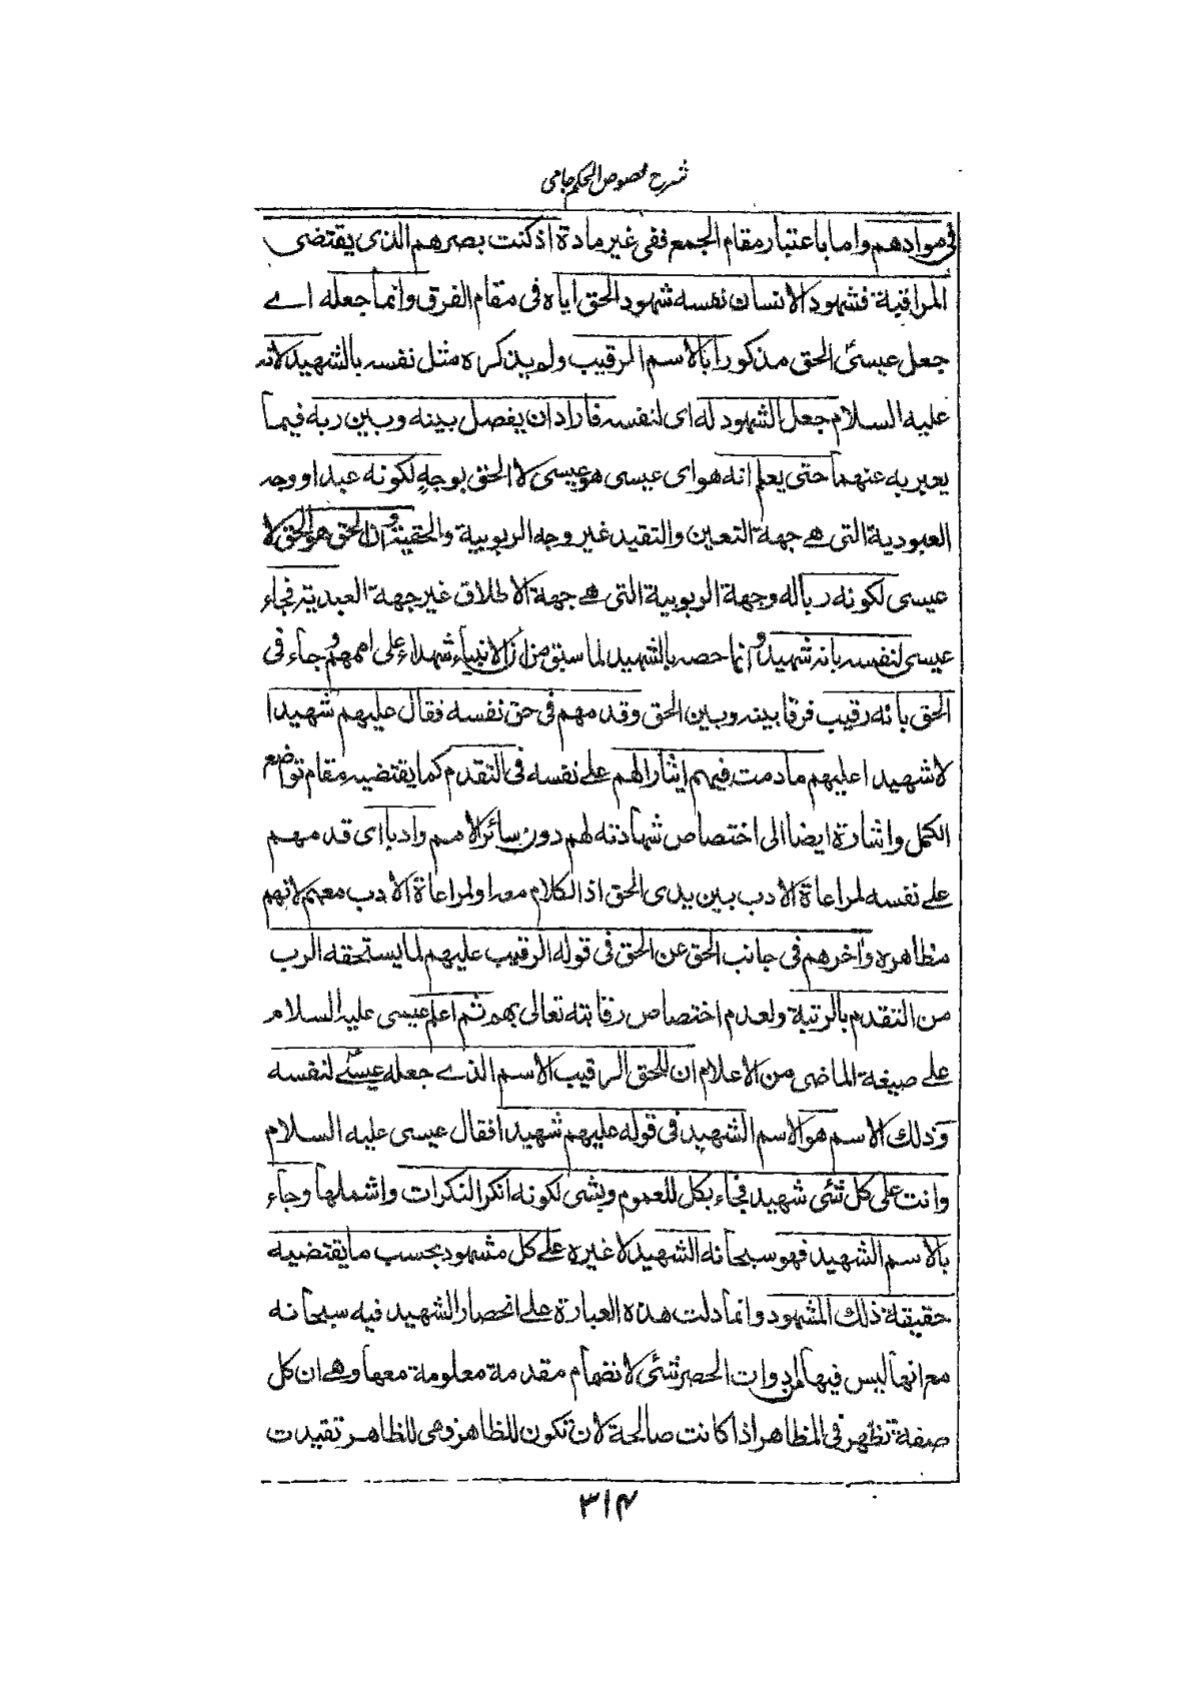 شرح فصوص الحکم جامی
فی موادهم واما باعتبار مقام الجمع ففی غیر مادة اذ کنت بصرهم الذی یقتضی
المراقبة فشهود الانسان نفسه شهود الحق ایاه فی مقام الفرق وانما جعله اے
جعل عیسیٰ الحق مذکورا بالاسم الرقیب ولم یذکره مثل نفسه بالشهید لانه
علیه السلام جعل الشهود له ای لنفسه فاراد ان یفصل بینه وبین ربه فیما
یعبر به عنهما حتی یعلم انه هو ای عیسی هو عیسی لا الحق بوجهٍ لکونه عبدا ووجه
العبودیة التی هے جهة التعین والتقید غیر وجه الربوبیة والحقیة وان الحق هو الحق لا
عیسی لکونه رباله وجهة الربوبیة التی هے جهة الاطلاق غیر جهة العبدیة فجاء
عیسی لنفسه بانه شهید وانما خصه بالشهید لما سبق من ان الانبیاء شهداء علی اممهم وجاء فی
الحق بانه رقیب فرقا بینه وبین الحق وقدمهم فی حق نفسه فقال علیهم شهیدا
لا شهیدا علیهم ما دمت فیهم ایثارا لهم علے نفسه فی التقدم کما یقتضیه مقام تواضع
الکمل واشارة ایضا الی اختصاص شهادته لهم دون سائر الامم وادبا ای قدمهم
علے نفسه لمراعاة الادب بین یدی الحق اذ الکلام معه او لمراعاة الادب معهم لانهم
مظاهره واخرهم فی جانب الحق عن الحق فی قوله الرقیب علیهم لما یستحقه الرب
من التقدم بالرتبة ولعدم اختصاص رقابته تعالی بهم ثم اعلم عیسی علیه السلام
علے صیغة الماضی من الاعلام ان للحق الرقیب الاسم الذے جعله عیسٰے لنفسه
وذلک الاسم هو الاسم الشهید فی قوله علیهم شهیدا فقال عیسی علیه السلام
وانت علی کل شئی شهید فجاء بکل للعموم وبشیٔ لکونه انکر النکرات واشملها وجاء
بالاسم الشهید فهو سبحانه الشهید لا غیره علے کل مشهود بحسب ما یقتضیه
حقیقة ذلک المشهود وانما دلت هذه العبارة علے انحصار الشهید فیه سبحانه
مع انها لیس فیها ادوات الحصر شئی لانضمام مقدمة معلومة معها وهے ان کل
صفة تظهر فی المظاهر اذا کانت صالحة لان تکون للظاهر فهی للظاهر تقیدت
۳۱۴